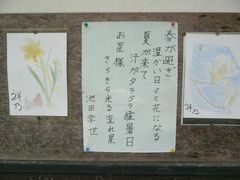 春が過ぎ
温かい日々と花になる
夏が来て
汗がタラタラ猛暑日
お星様
きらきら光る流れ星
池田幸世
祥乃
祥乃